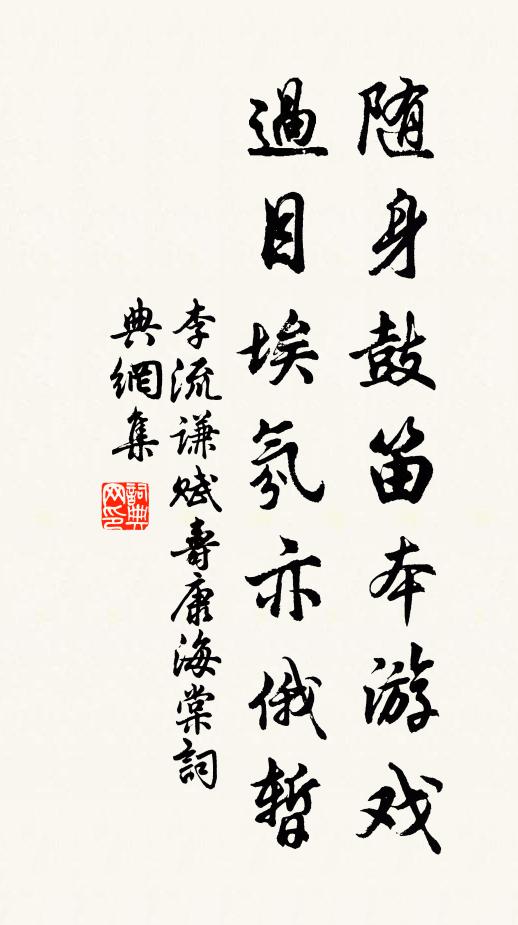 随身鼓笛本游戏
過目埃氛亦俄暫
李流谦赋壽康海棠詞
典網集
詞典
网印